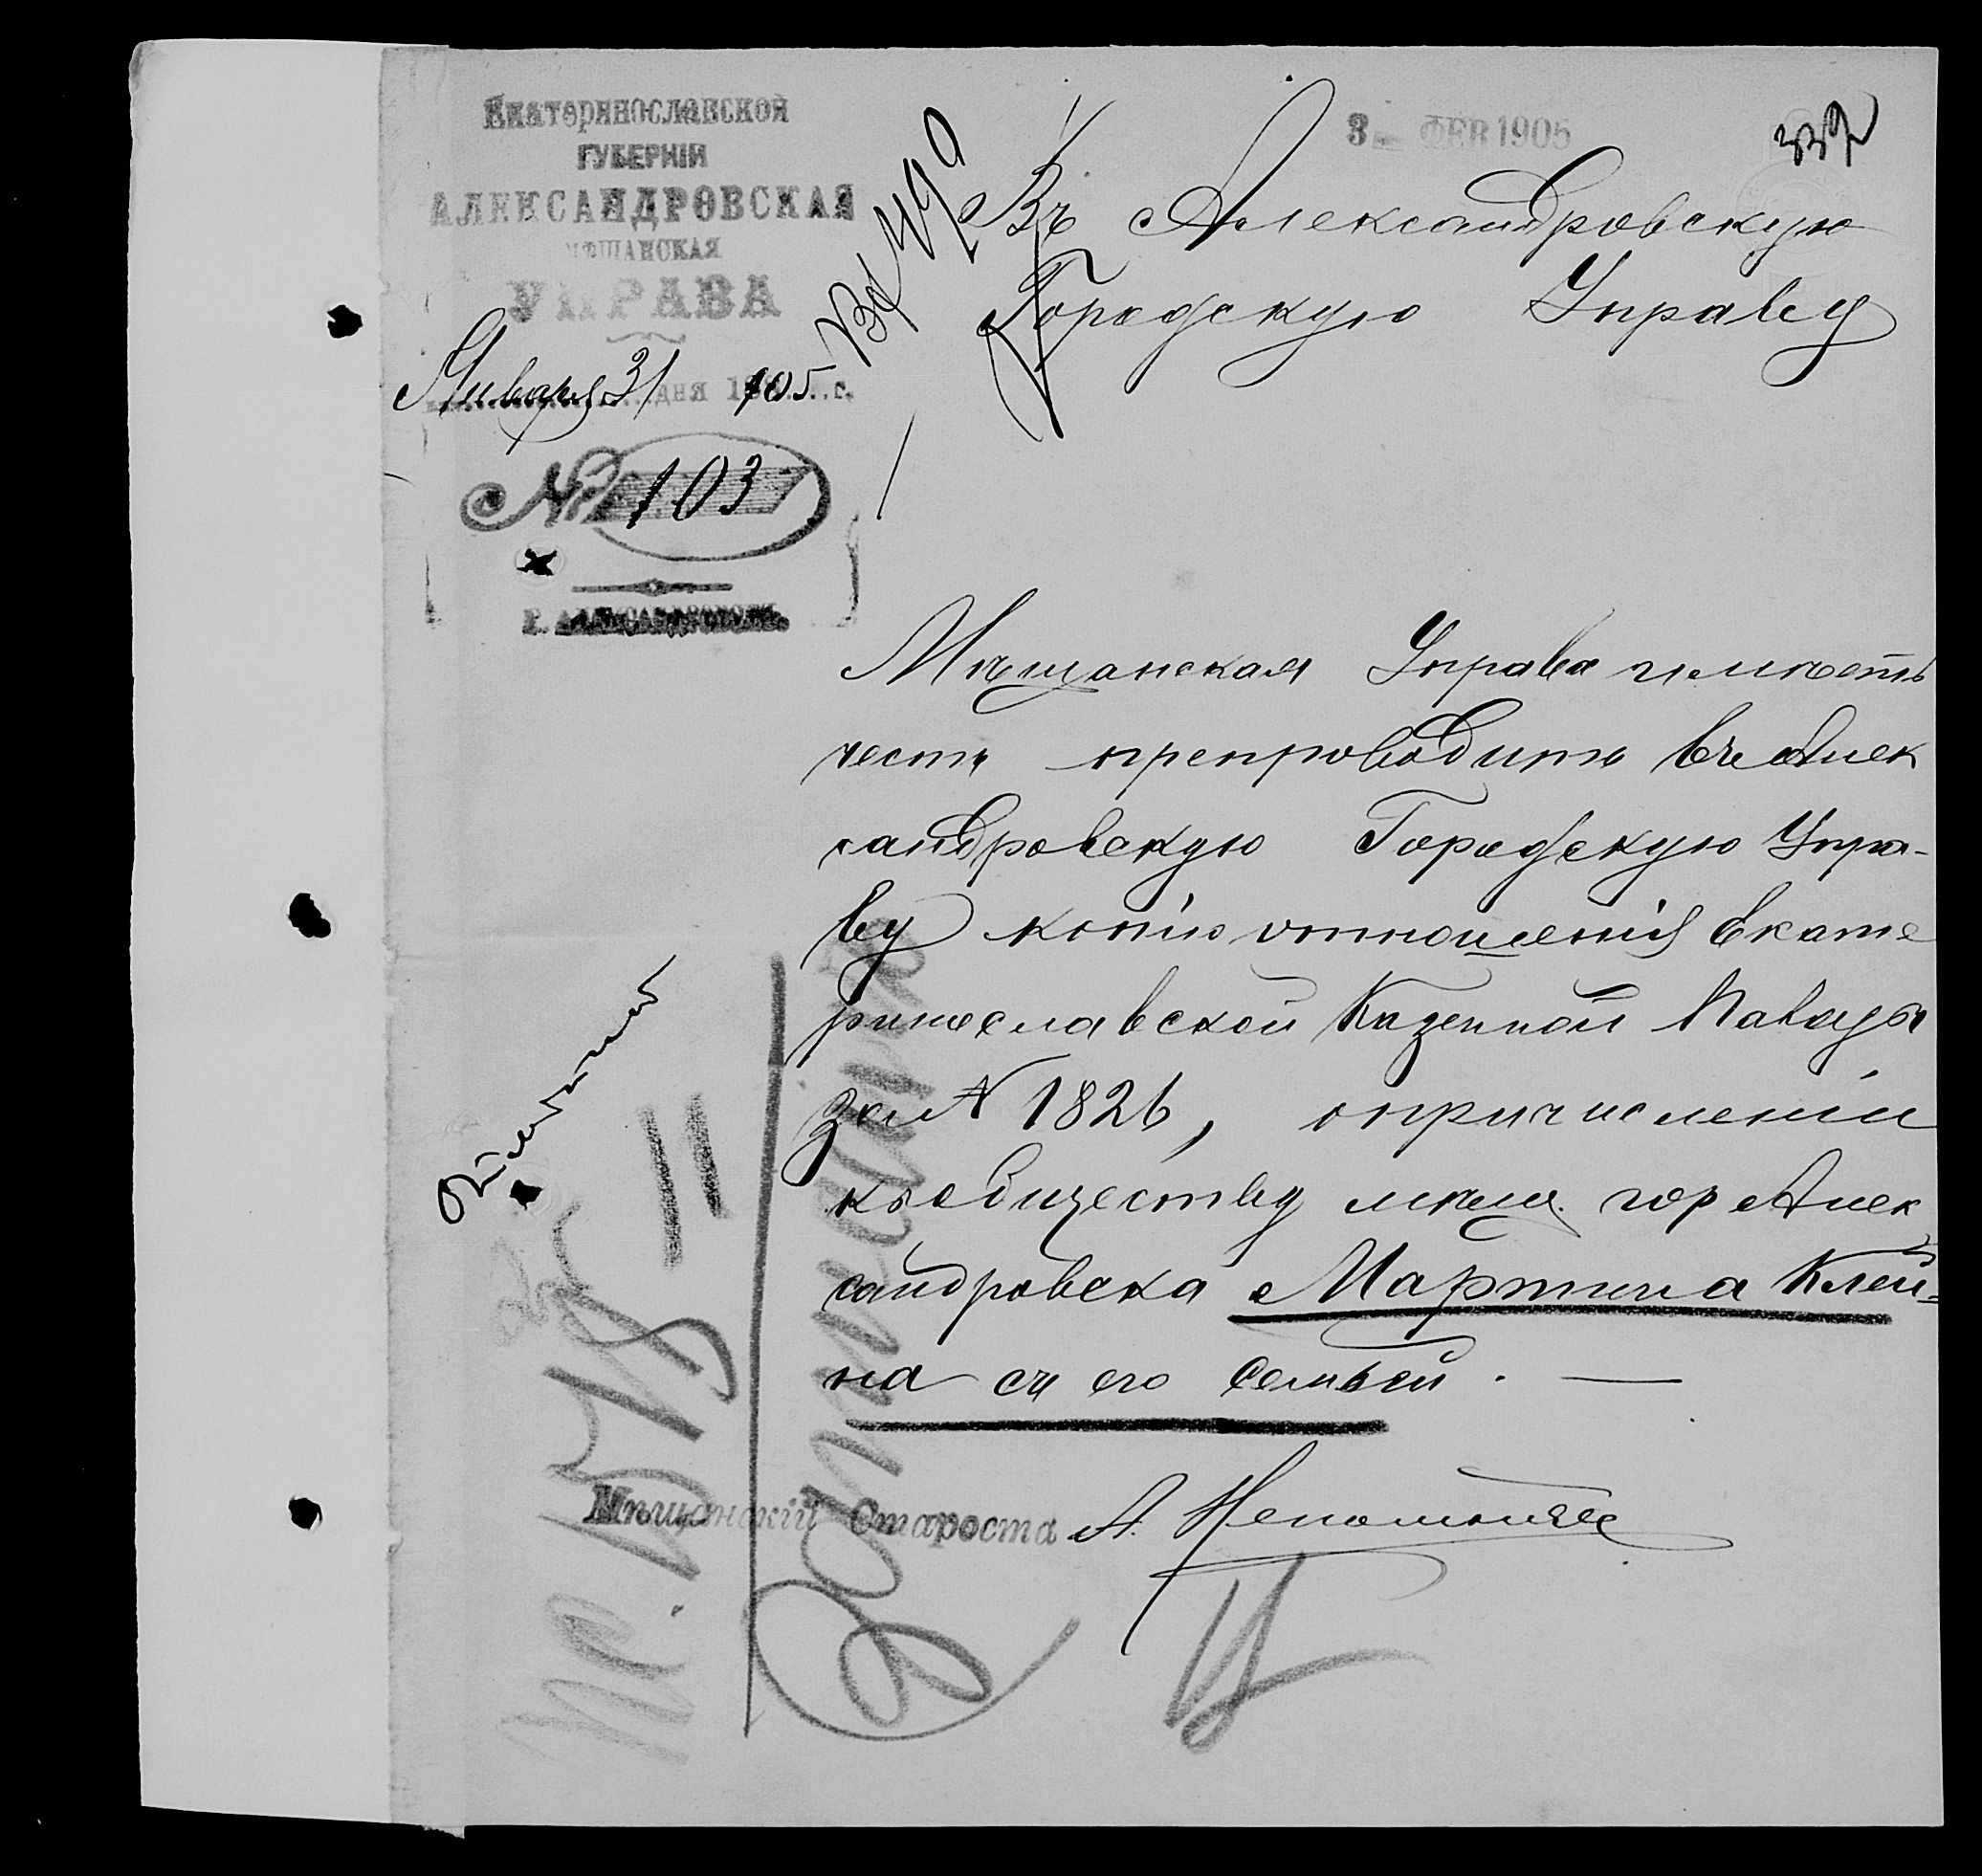 Екатеринославской
ГУБЕРНІИ
АЛЕКСАНДРОВСКАЯ
МѢЩАНСКАЯ
УПРАВА
Января 31 дня 1905 г.
№ 103
Г. АЛЕКСАНДРОВСКЪ
3 ФЕВ 1905
Въ Александровскую
Городскую Управу
Мѣщанская Управа имѣетъ
честь препроводить въ Алек
сандровскую Городскую Упра-
ву копію отношенія Екате
ринославской Казенной Палаты
за № 1826, о причисленіи
къ обществу мѣщ. гор Алек
сандровска Мартина Клей-
на съ его семьей. —
Мѣщанскій Староста А.